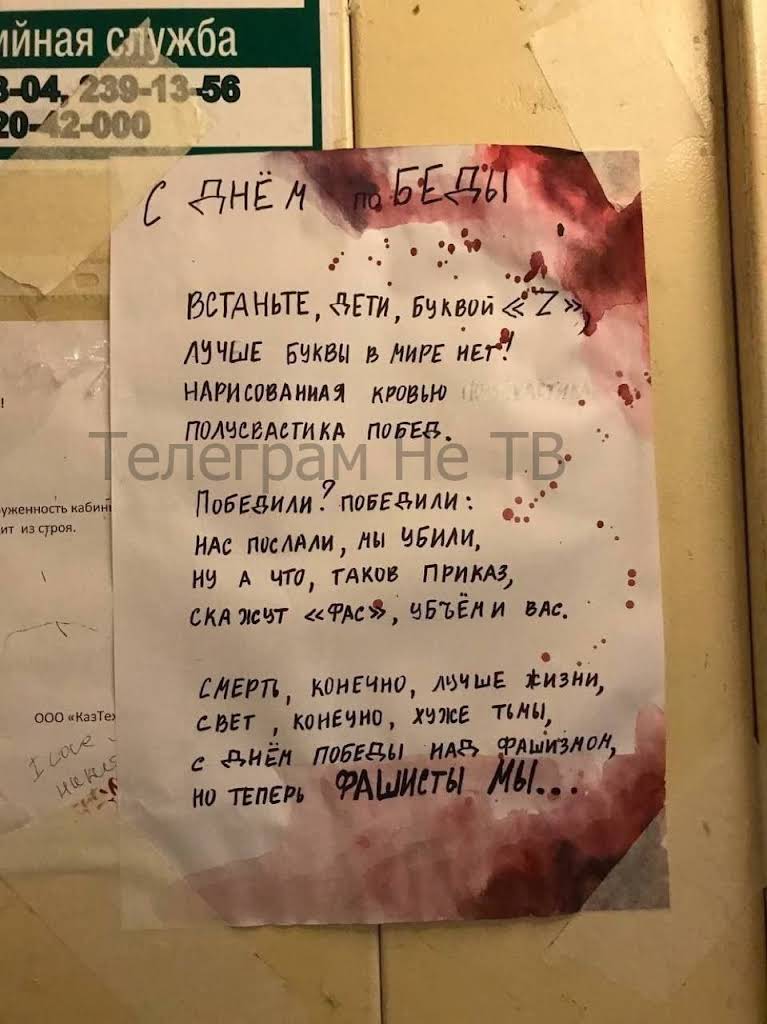 ийная служба
3-04, 239-13-56
20-42-000
С ДНЁМ поБЕДЫ
ВСТАНЬТЕ, ДЕТИ, БУКВОЙ «Z»,
ЛУЧШЕ БУКВЫ В МИРЕ НЕТ!
НАРИСОВАННАЯ КРОВЬЮ
ПОЛУСВАСТИКА ПОБЕД.
Телеграм Не ТВ
ПОБЕДИЛИ? ПОБЕДИЛИ:
НАС ПОСЛАЛИ, МЫ УБИЛИ,
НУ А ЧТО, ТАКОВ ПРИКАЗ,
СКАЖУТ «ФАС», УБЪЁМ И ВАС.
СМЕРТЬ, КОНЕЧНО, ЛУЧШЕ ЖИЗНИ,
СВЕТ, КОНЕЧНО, ХУЖЕ ТЬМЫ,
С ДНЁМ ПОБЕДЫ НАД ФАШИЗМОМ,
НО ТЕПЕРЬ ФАШИСТЫ МЫ...
!
уженность кабин
ит из строя.
ООО «КазТех
I love